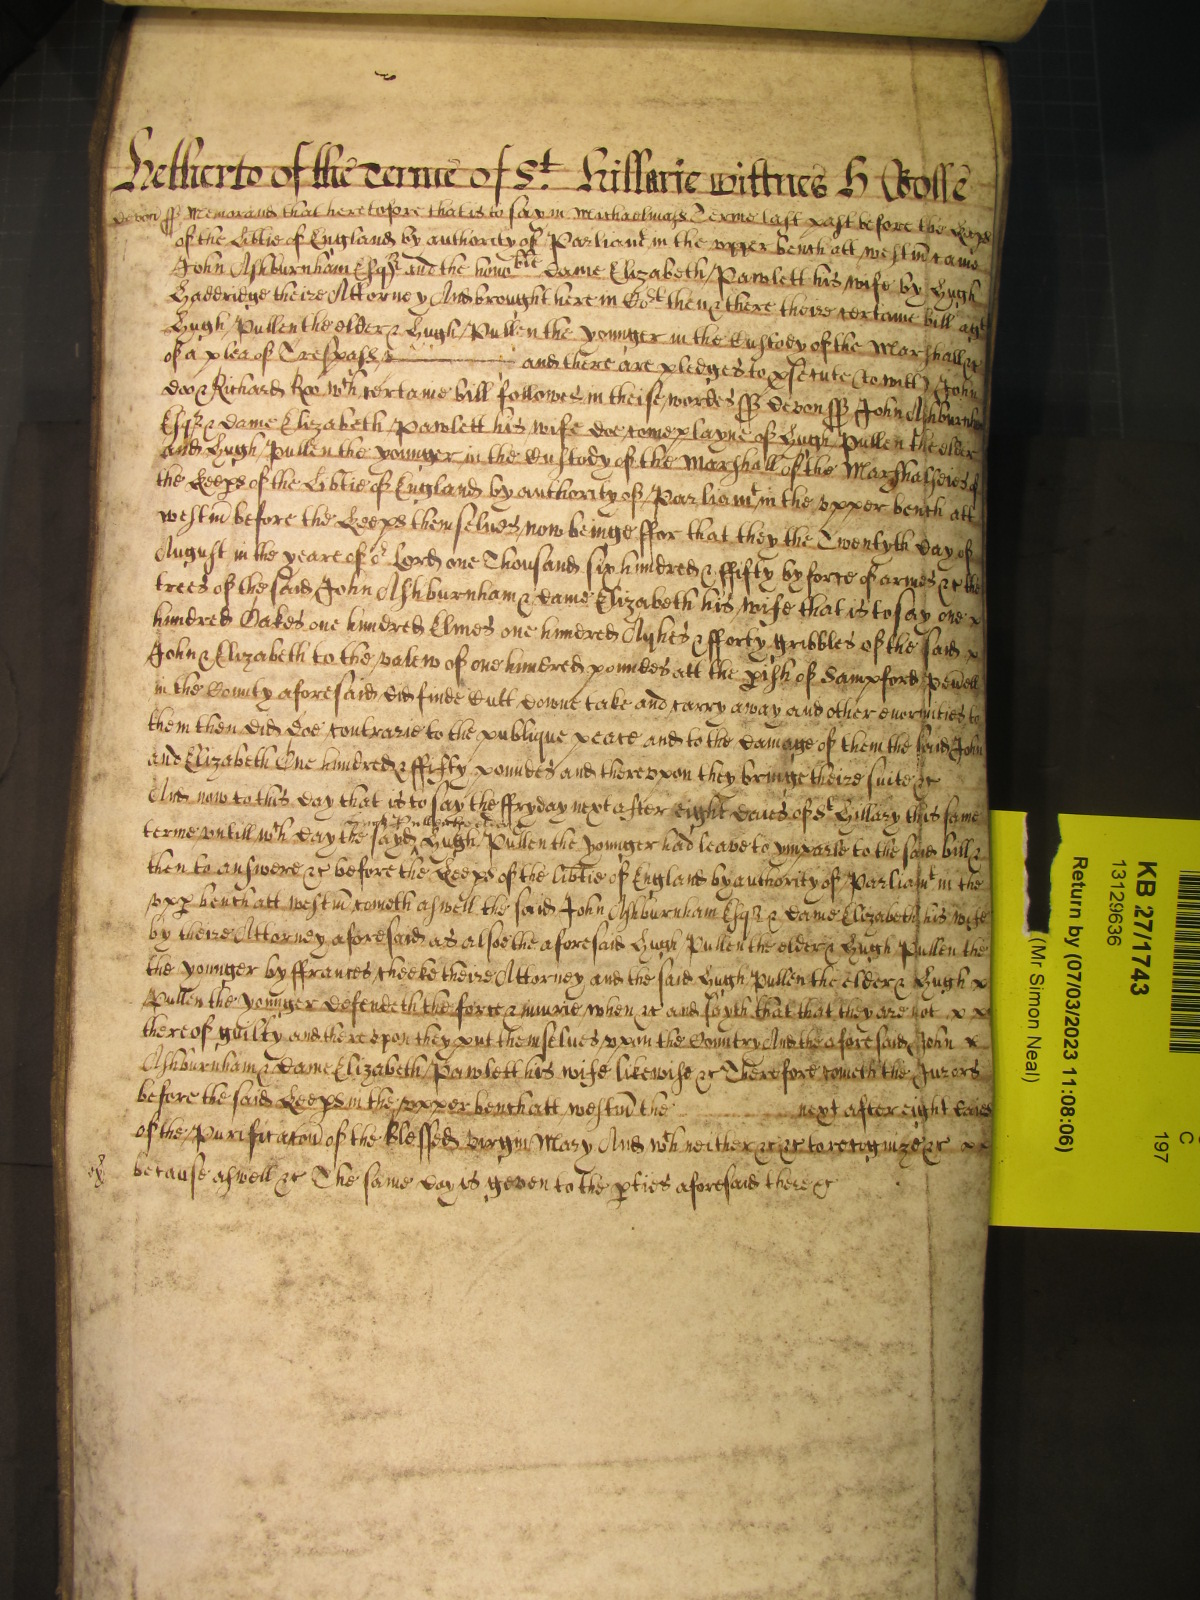 Hetherto of the terme of St. Hillarie wittnes H Rolle
Devon ss Memorand that heretofore that is to say in Michaelmas Terme last past before the Keeps
of the Libtie of England by authority of Parliamt in the upper bench att westm came
John Ashburnham Esqr and the honoble Dame Elizabeth Pawlett his wife by Hugh
theire Attorney And brought here in Cort then & there theire certaine bill agt
Hugh Pullen the elder & Hugh Pullen the younger in the Custody of the Marshall &c
of a plea of Trespass & and there are pledges to psecute (to witt) John
Doo & Richard Roo wch certaine bill followes in theise wordes ss Devon ss John Ashburnham
Esqr & Dame Elizabeth Pawlett his wife doe complayne of Hugh Pullen the elder
and Hugh Pullen the younger in the Custody of the Marshall of the Marshalseies of
the Keeps of the Libtie of England by authority of Parliamt in the upper bench att
westm before the Keeps themselves now beinge ffor that they the Twentyth day of
August in the yeare of or Lord one Thousand six hundred & ffifty by force of armes &c the
trees of the said John Ashburnham & Dame Elizabeth his wife that is to say one x
hundred Oakes one hundred Elmes one hundred Ashes & fforty gribbles of the said x
John & Elizabeth to the valew of one hundred poundes att the pish of Sampford Pevell
in the County aforesaid did finde Cutt downe take and carry away and other enormities to
them then did doe contrarie to the publique peace and to the damage of them the said John
and Elizabeth One hundred & ffifty poundes and thereupon they bringe theire suite &c
And now to this day that is to say the ffryday next after eight daies of St Hillary this same
terme untill wch day the sayd Hugh Pullen the elder & Hugh Pullen the younger had leave to imparle to the said bill &
then to answere &c before the Keeps of the libtie of England by authority of Parliamt in the
upp bench att westm cometh aswell the said John Ashburnham Esqr & Dame Elizabeth his wife
by theire Attorney aforesaid as alsoe the aforesaid Hugh Pullen the elder & Hugh Pullen the
the younger by ffrances Cheeke theire Attorney and the said Hugh Pullen the elder & Hugh x
Pullen the younger defendeth the force & iniurie when &c and sayth that that they are not x x
thereof guilty and thereupon they put themselves upon the Country And the aforesaid John x
Ashburnham & Dame Elizabeth Pawlett his wife likewise &c Therefore cometh the Jurors
before the said Keeps in the upper bench att westm the next after eight daies
of the Purificacon of the blessed virgin Mary And wch neither &c &c to recognize &c x x
because aswell &c The same day is geven to the pties aforesaid there &c
KB 27/1743
13129636
Return by (07/03/2023 11:08:06)
(Mr Simon Neal)
C
197